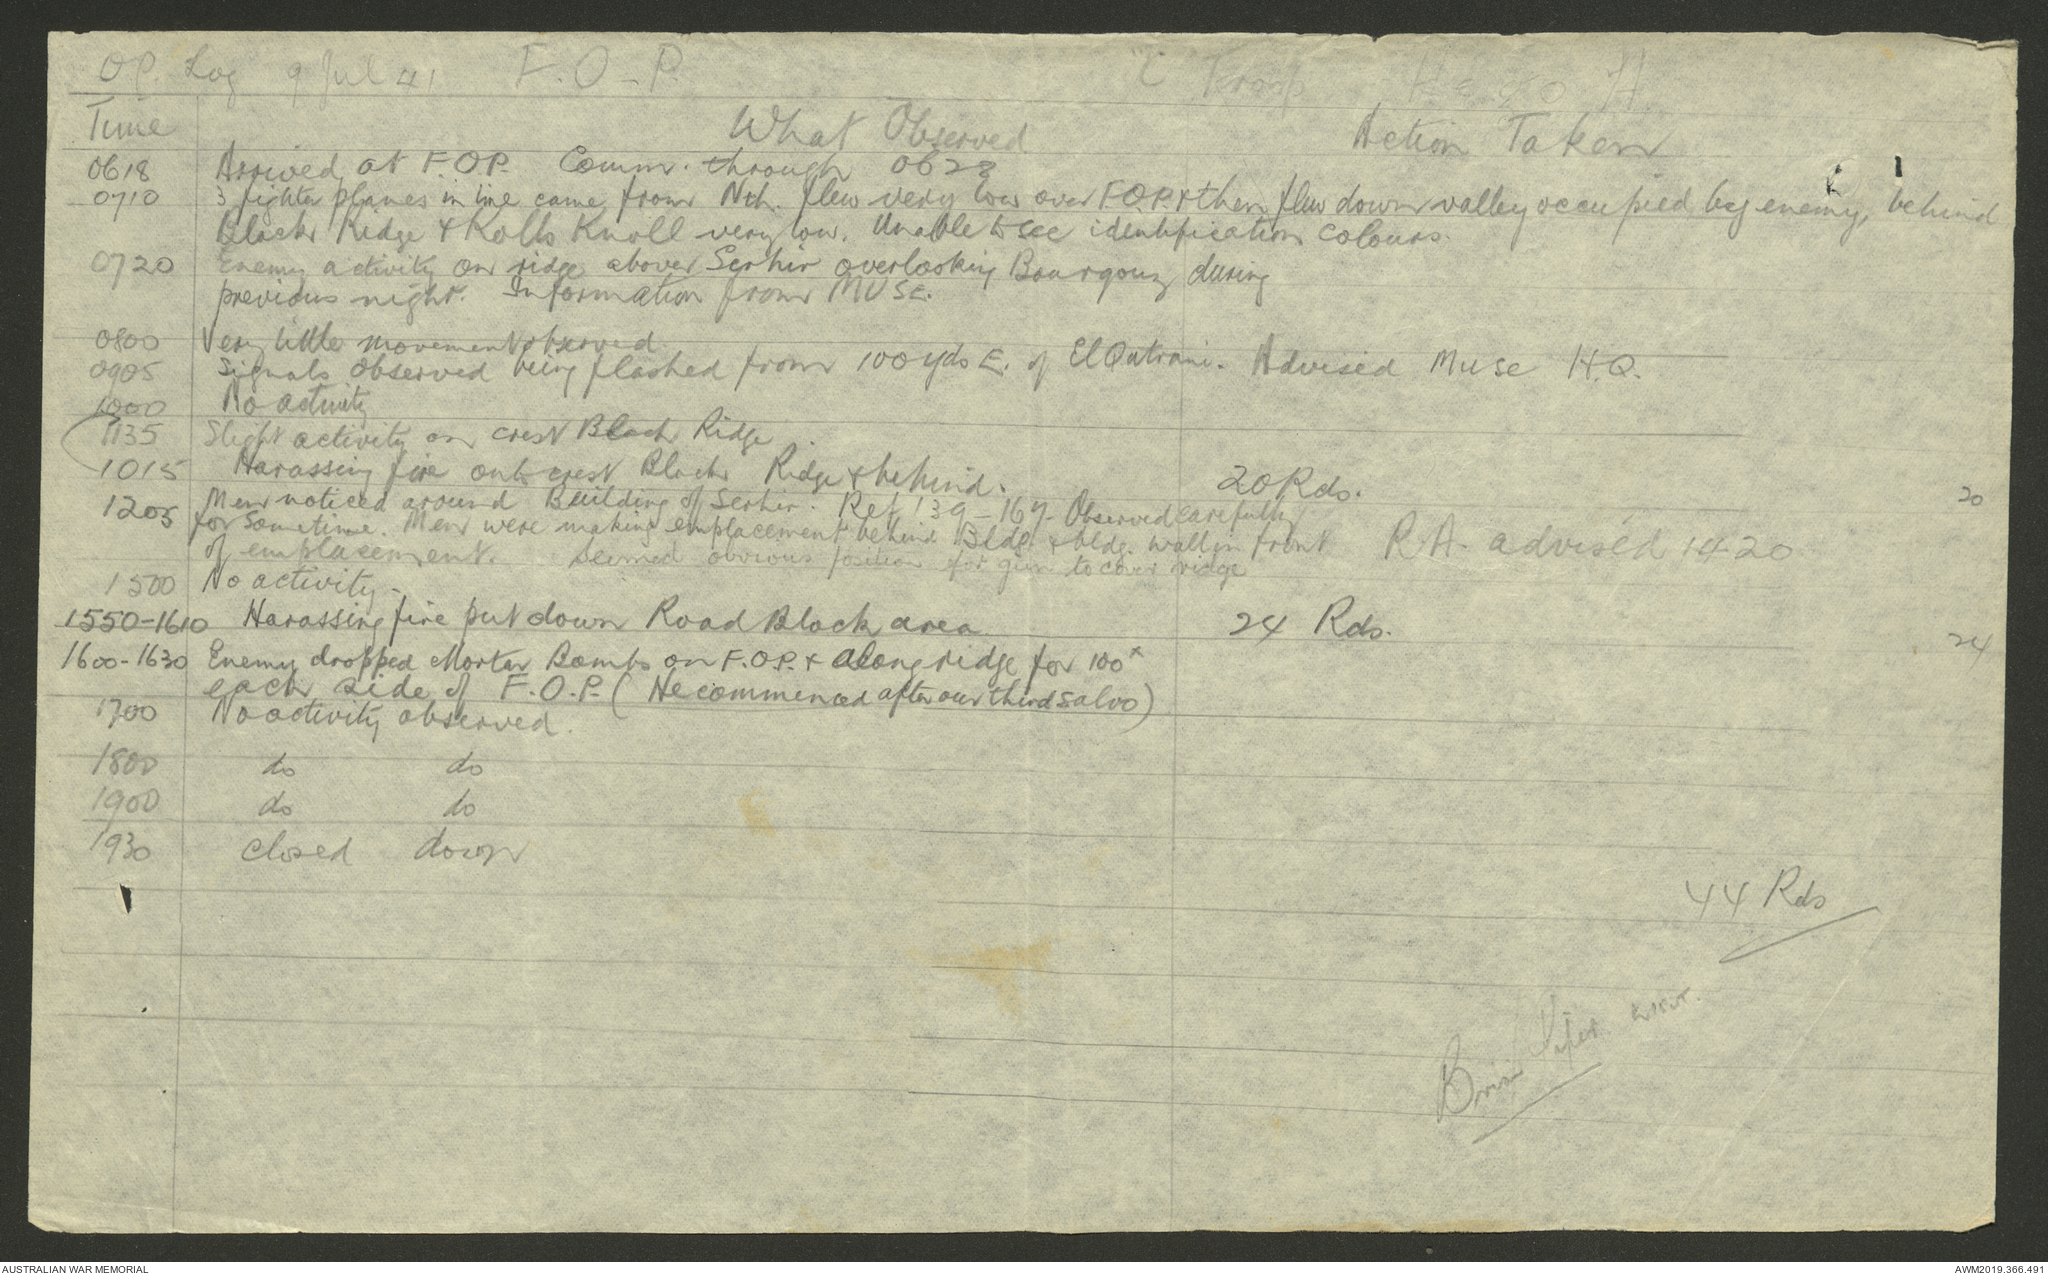 OP. Log 9 Jul 41 F.O.P. "C Troop
Time What Observed Action Taken
0618 Arrived at F.O.P. Comm. through 0628
0710 3 fighter planes in line came from Nth. flew very low over F.O.P. & then flew down valley occupied by enemy, behind
Black Ridge & Kolls Knoll very low. Unable to see identification colours.
0720 Enemy activity on ridge above Serhir overlooking Bourqouz during
previous night. Information from MUSE.
0800 Very little movement observed
0905 Signals observed being flashed from 100 yds E. of El Qatrani. Advised Muse H.Q.
1000 No activity
1135 Slight activity on crest Black Ridge.
1015 Harassing fire onto crest Black Ridge & behind. 20 Rds. 20
1205 Men noticed around Building of Serhir. Ref 139-167. Observed carefully
for sometime. Men were making emplacement behind Bldg. & bldg. wall in front R.A. advised 1420
of emplacement. Seemed obvious position for gun to cover ridge
1500 No activity.
1550-1610 Harassing fire put down Road Block area 24 Rds. 24
1600-1630 Enemy dropped Mortar Bombs on F.O.P. & along ridge for 100x
each side of F.O.P. (He commenced after our third salvo)
1700 No activity observed.
1800 do do
1900 do do
1930 closed down
44 Rds
AUSTRALIAN WAR MEMORIAL AWM2019.366.491